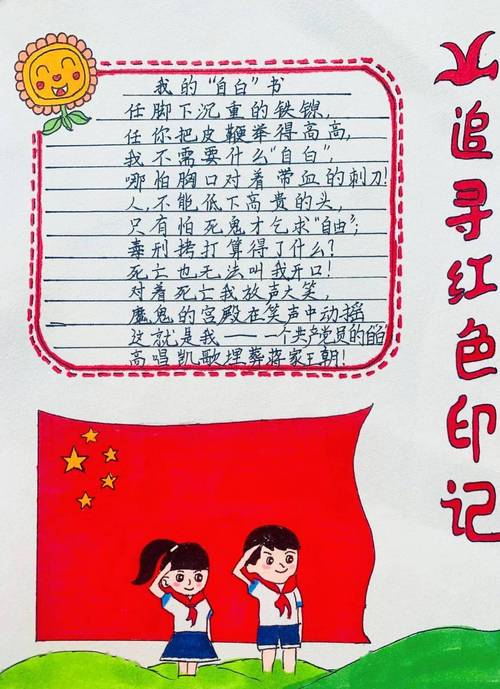 我的"自白"书
任脚下沉重的铁镣,
任你把皮鞭举得高高,
我不需要什么"自白",
哪怕胸口对着带血的刺刀!
人,不能低下高贵的头,
只有怕死鬼才乞求"自由";
毒刑拷打算得了什么?
死亡也无法叫我开口!
对着死亡我放声大笑,
魔鬼的宫殿在笑声中动摇
这就是我——一个共产党员的自白
高唱凯歌埋葬蒋家王朝!
追寻红色印记